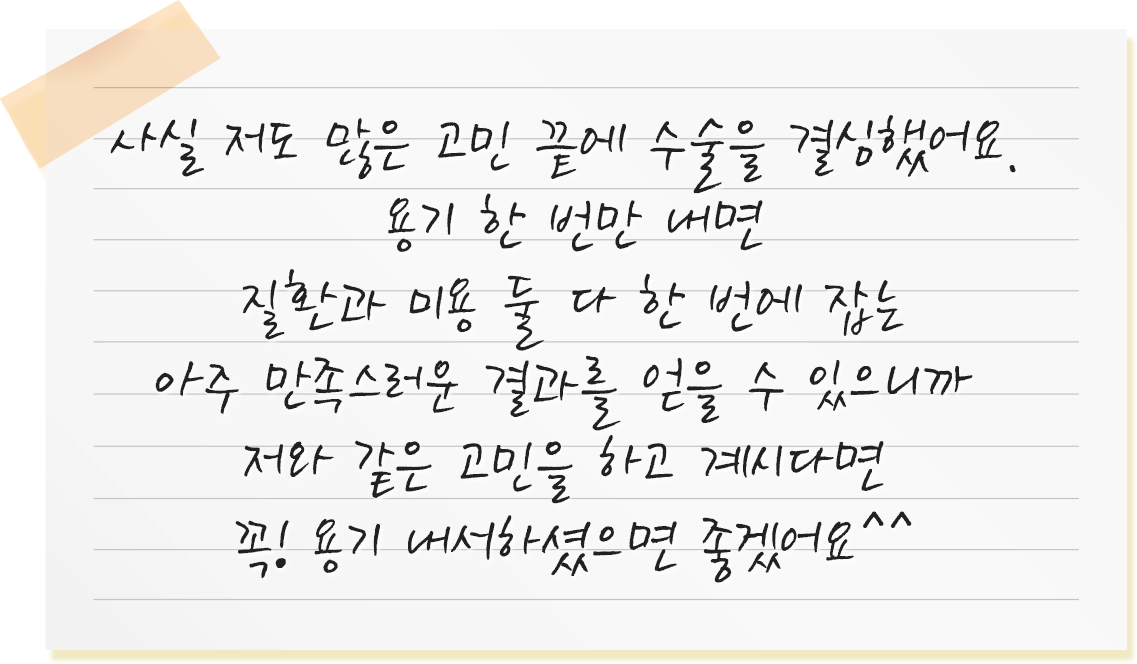 사실 저도 많은 고민 끝에 수술을 결심했어요.
용기 한 번만 내면
질환과 미용 둘 다 한 번에 잡는
아주 만족스러운 결과를 얻을 수 있으니까
저와 같은 고민을 하고 계시다면
꼭! 용기 내서하셨으면 좋겠어요^^